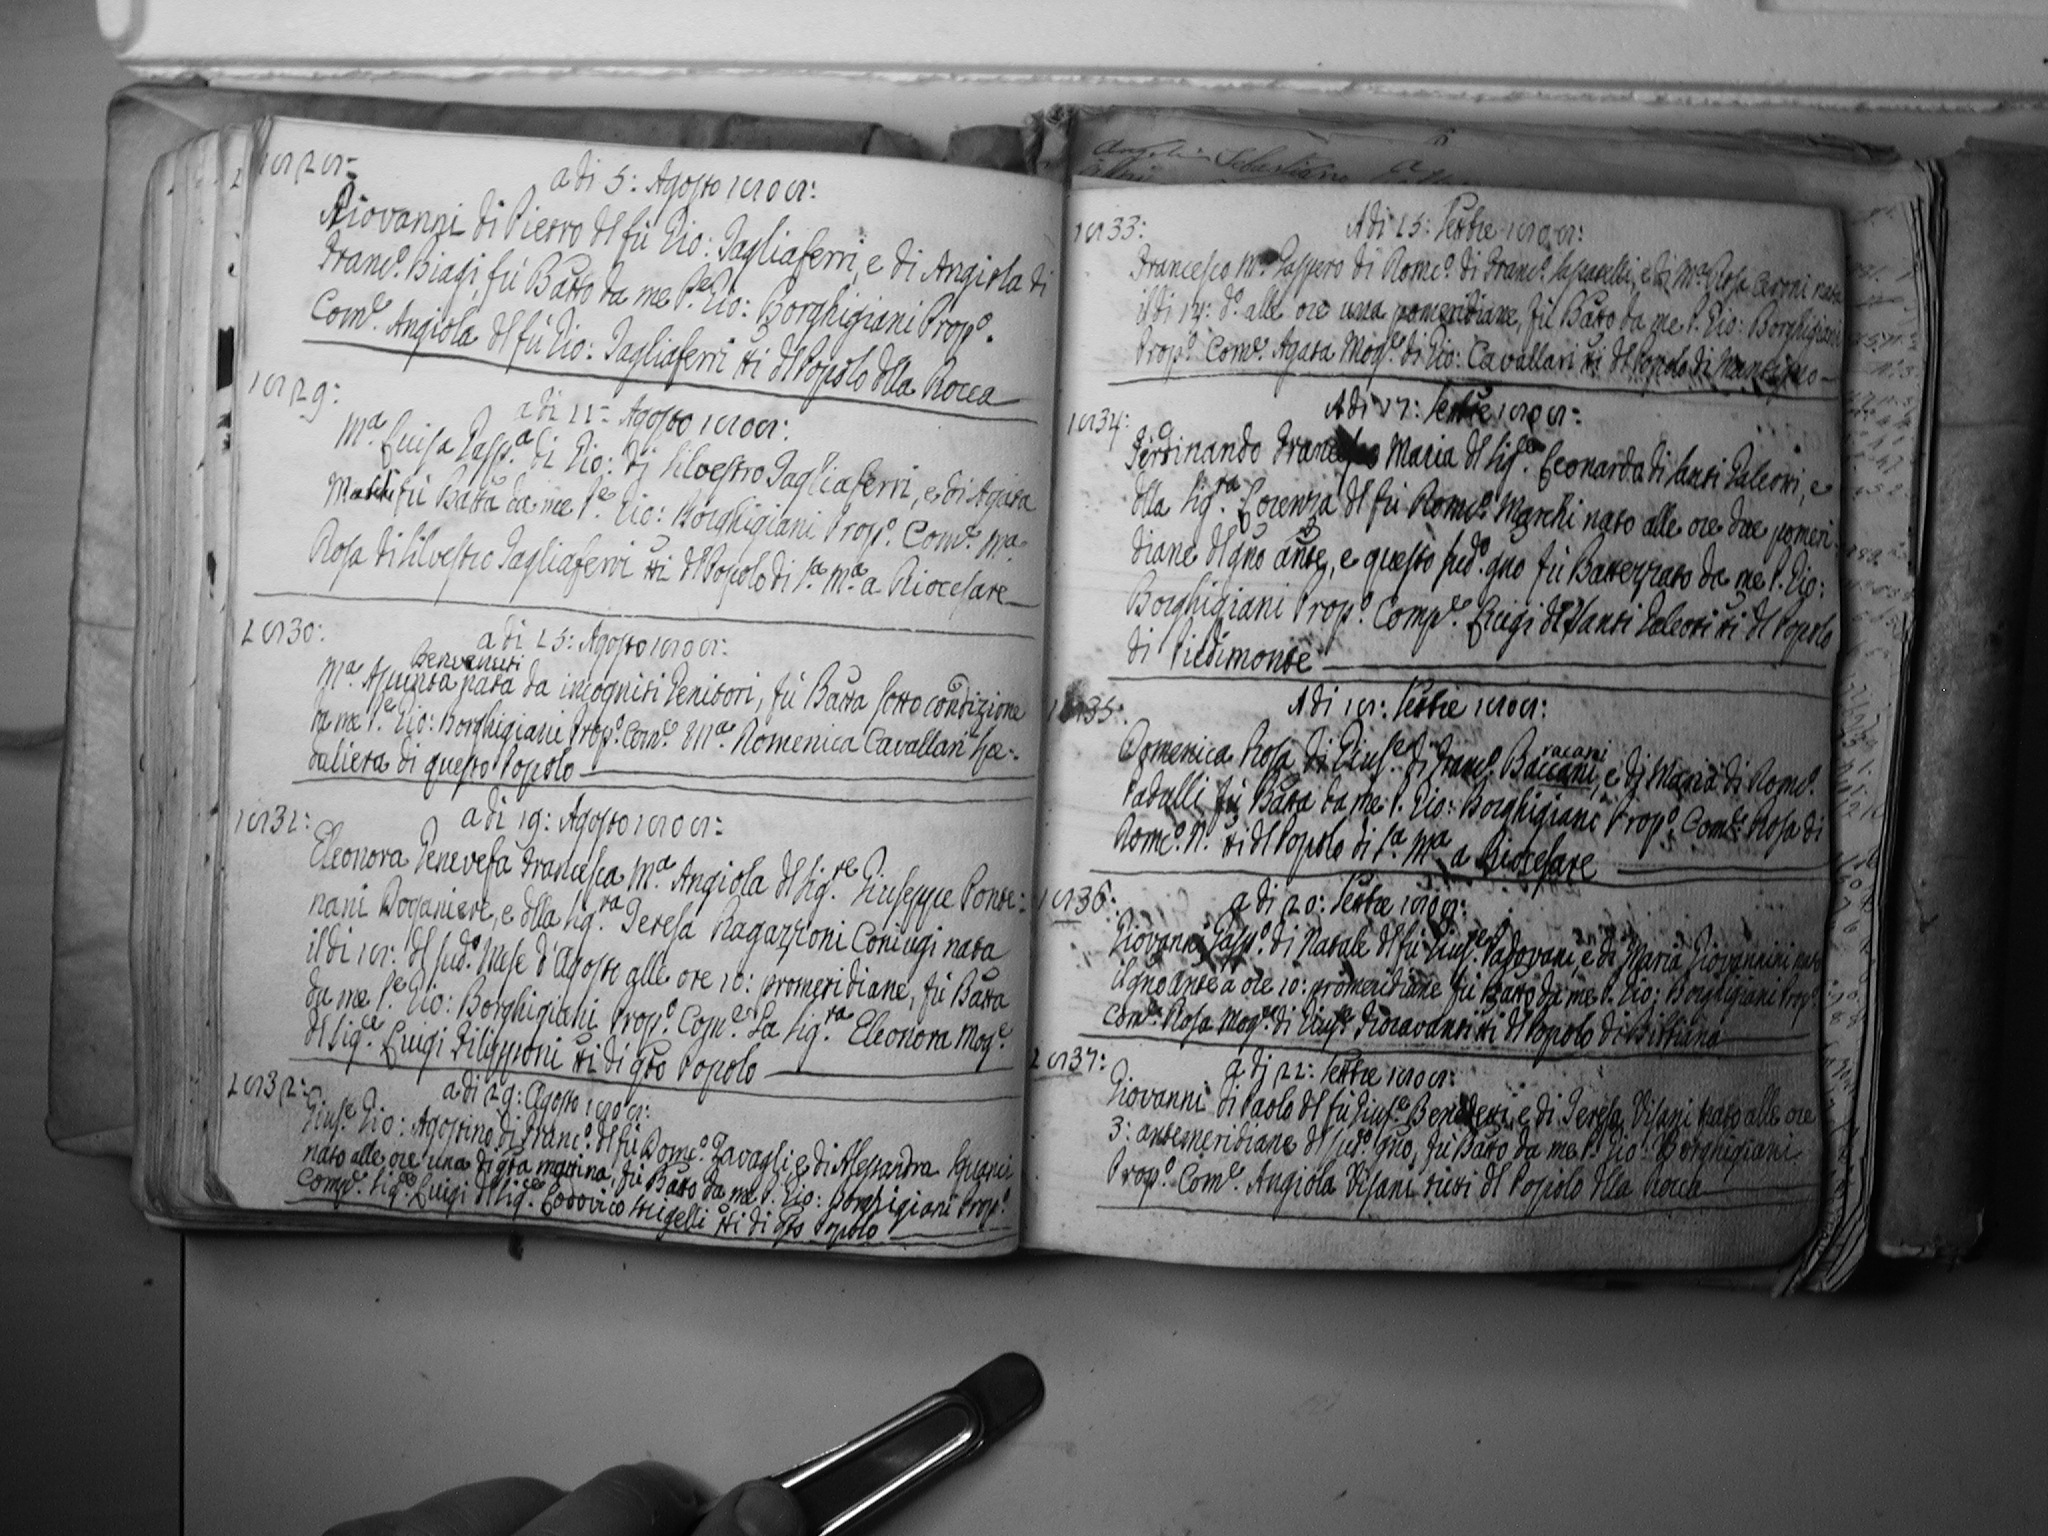 a di 5: Agosto 1808:
Giovanni di Pietro dl fù Gio: Tagliaferri, e di Angiola di
Franc.º Biagi, fù Batto da me P.e Gio: Borghigiani Prop.º
Com.e Angiola dl fù Gio: Tagliaferri tti dl Popolo dlla Rocca
1829:
a di 11: Agosto 1808:
M.a Luisa Gasp.a di Gio: di Silvestro Tagliaferri, e di Agata
fù Batta da me P.e Gio: Borghigiani Prop.º Com.e M.a
Rosa di Silvestro Tagliaferri tti dl Popolo di S.a M.a a Riocesare
1830:
a di 15: Agosto 1808:
Benvenuti
M.a Assunta nata da incogniti Genitori, fù Batta sotto condizione
da me P.e Gio: Borghigiani Prop.º Com.e M.a Domenica Cavallari Spe-
daliera di questo Popolo
1831:
a di 19: Agosto 1808:
Eleonora Genevefa Francesca M.a Angiola dl Sig.re Giuseppe Ponte-
nani Doganiere, e dlla Sig.ra Teresa Ragazzoni Coniugi nata
il di 18: dl sud.º Mese d'Agosto alle ore 10: promeridiane, fù Batta
da me P.e Gio: Borghigiani Prop.º Com.e La Sig.ra Eleonora Mog.e
dl Sig.e Luigi Filipponi tti di qto Popolo
1832:
a di 29: Agosto 1808:
Gius.e Gio: Agostino di Franc.º dl fù Dom.º Zavagli, e di Alessandra
nato alle ore una di qta mattina, fù Batto da me P. Gio: Borghigiani Prop.º
Comp.e Sig.e Luigi dl Sig.e Lodovico Strigelli tti di qto Popolo
1833:
A di 15: Settbre 1808:
Francesco M.a Gaspero di Dom.º di Franc.º e di M.a Rosa Ceroni nato
il di 14: d.º alle ore una pomeridiane, fù Batto da me P. Gio: Borghigiani
Prop.º Com.e Agata Mog.e di Gio: Cavallari tti dl Popolo di
1834:
A di 17: Settbre 1808:
Ferdinando Francesco Maria dl Sig.e Leonardo di Santi Galeotti, e
dlla Sig.ra Lorenza dl fù Dom.º Marchi nato alle ore due pomeri-
diane dl gno ante, e questo sud.º gno fù Battezzato da me P. Gio:
Borghigiani Prop.º Comp.e Luigi dl Santi Galeotti tti dl Popolo
di Piedimonte
1835:
A di 18: Settbre 1808:
Domenica Rosa di Gius.e di Franc.º Baccani, e di Maria di Dom.º
Padulli fù Batta da me P. Gio: Borghigiani Prop.º Com.e Rosa di
Dom.º N. tti dl Popolo di S.a M.a a Riocesare
1836:
a di 20: Settbre 1808:
Giovanni Gasp.º di Natale dl fù Gius.e Padovani, e di Maria Giovannini nato
il gno ante a ore 10: promeridiane fù Batto da me P. Gio: Borghigiani Prop.º
Com.e Rosa Mog.e di Gius.e Fioravanti tti dl Popolo di Bibbiana
1837:
a di 22: Settbre 1808:
Giovanni di Paolo dl fù Gius.e Benedetti, e di Teresa Visani nato alle ore
3: antemeridiane dl sud.º gno, fù Batto da me P. Gio: Borghigiani
Prop.º Com.e Angiola Visani tutti dl Popolo dlla Rocca